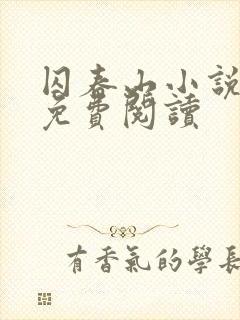 囚春山小說
免費閱讀
有香氣的學長